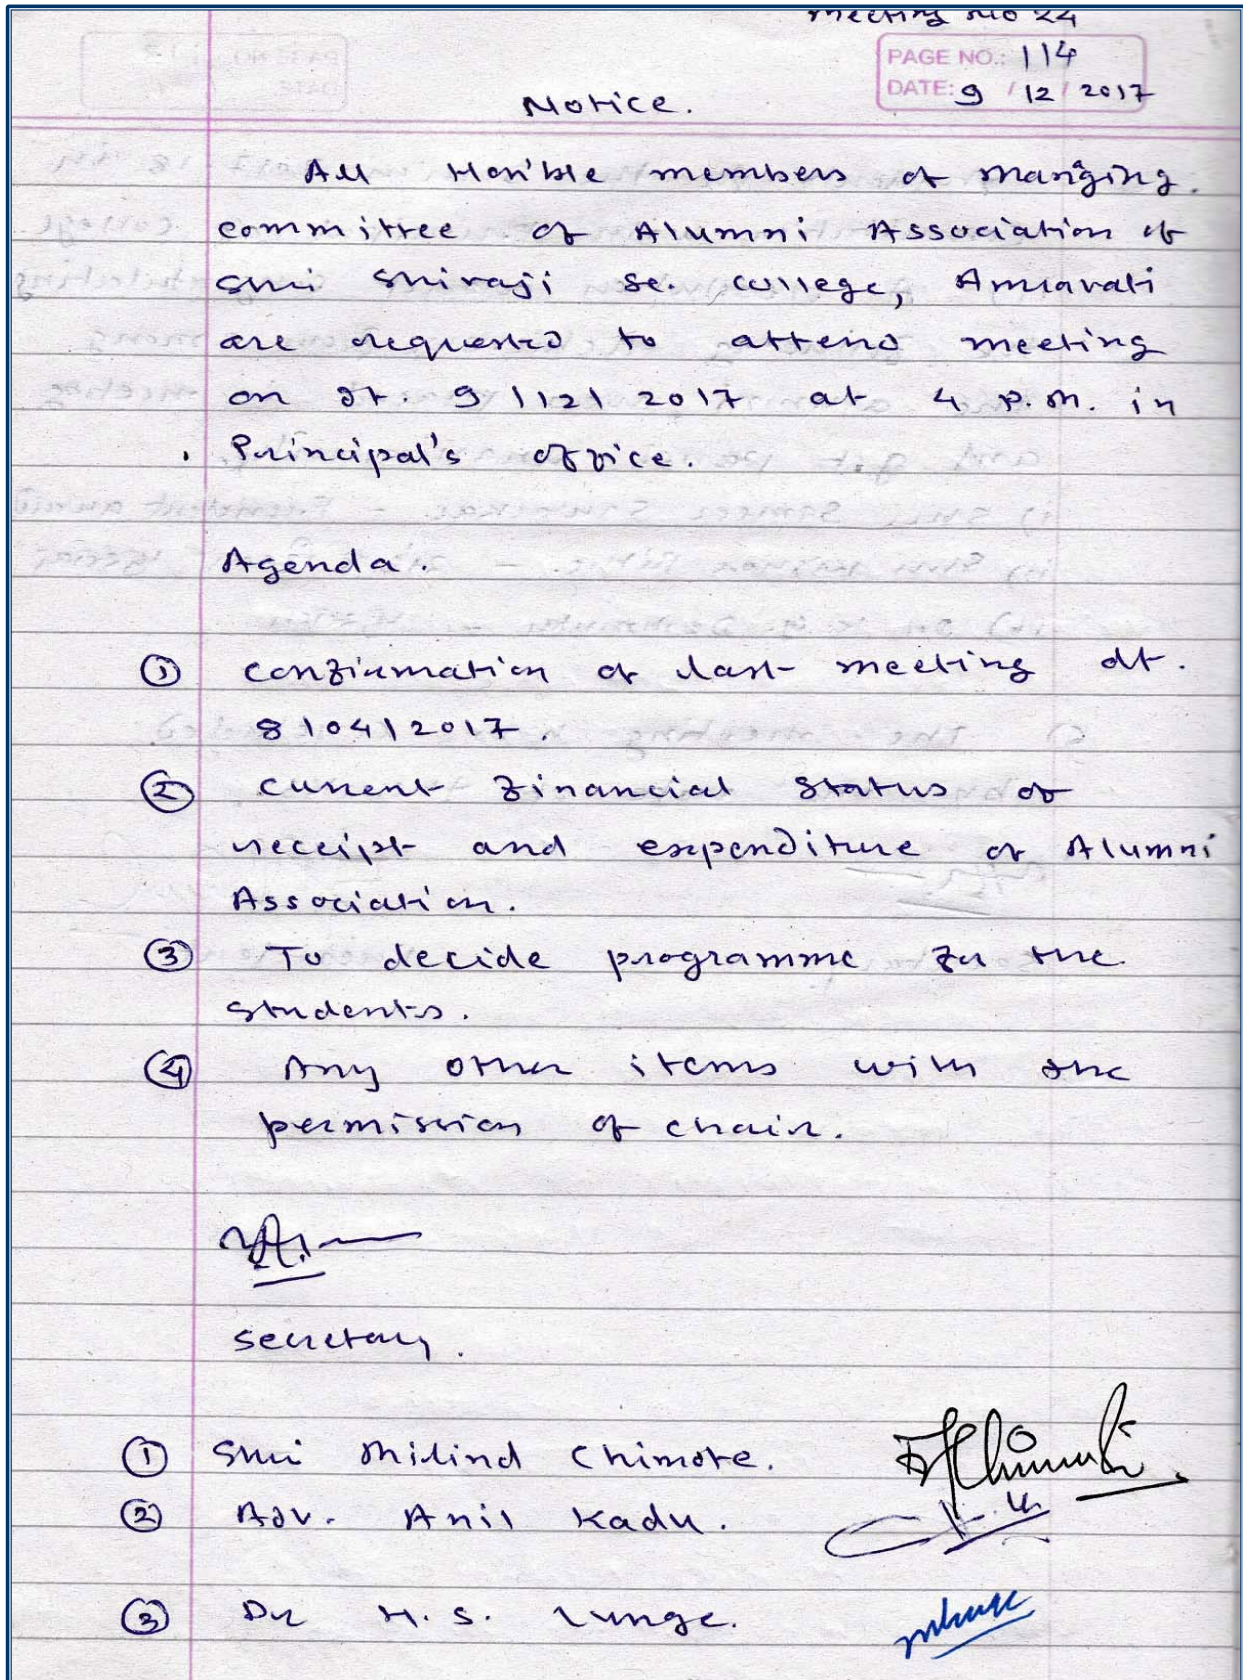 Meeting No 24
PAGE NO.: 114
DATE: 9 / 12 / 2017
Notice.
All Hon'ble members of manging
committee of Alumni Association of
Shri Shivaji Sc. college, Amravati
are requested to attend meeting
on dt. 9/12/2017 at 4 p.m. in
Principal's office.
Agenda.
① Confirmation of last meeting dt.
8/04/2017.
② Current financial status of
receipt and expenditure of Alumni
Association.
③ To decide programme for the
students.
④ Any other items with the
permission of chair.
Secretary.
① Shri Milind Chimote.
② Adv. Anil Kadu.
③ Dr H. S. Lunge.